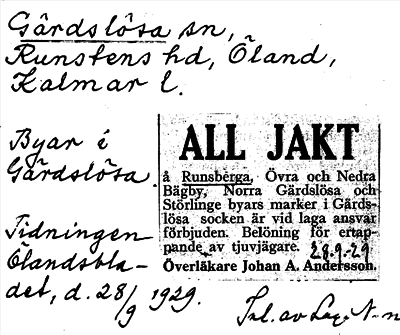 Gärdslösa sn,
Runstens hd, Öland,
Kalmar l.
Byar i
Gärdslösa.
Tidningen
Ölandsbla-
det, d. 28/9 1929.
ALL JAKT
å Runsberga, Övra och Nedra
Bägby, Norra Gärdslösa och
Störlinge byars marker i Gärds-
lösa socken är vid laga ansvar
förbjuden. Belöning för ertap-
pande av tjuvjägare.
28.-9.-29
Överläkare Johan A. Andersson.
Inl. av